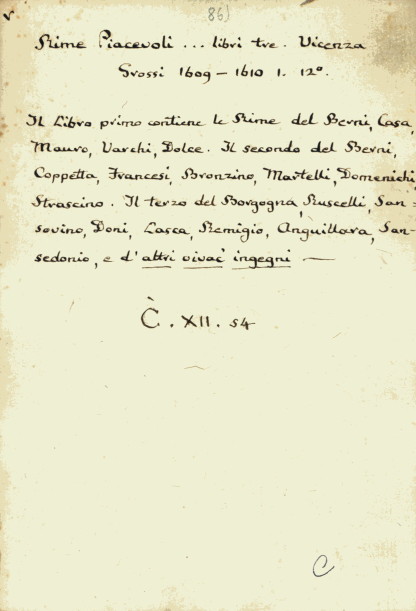 86)
Rime Piacevoli ... libri tre. Vicenza
Grossi 1609 – 1610 1. 12°.
Il Libro primo contiene le Rime del Berni, Casa,
Mauro, Varchi, Dolce. Il secondo del Berni,
Coppetta, Francesi, Bronzino, Martelli, Domenichi,
Strascino. Il terzo del Borgogna, Ruscelli, San=
sovino, Doni, Lasca, Remigio, Anguillara, San-
sedonio, e d'altri vivac' ingegni —
C̀. XII. 54
C